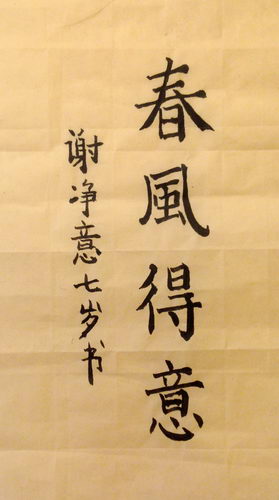 春風得意
谢净意七岁书